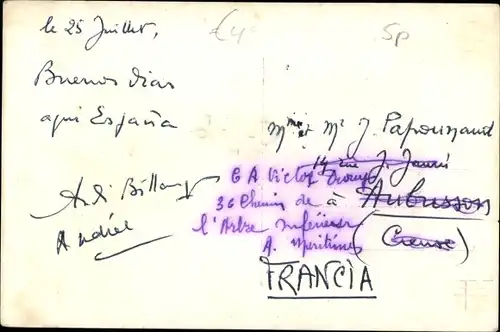 le 25 Juillet,
£4
5p
Buenos dias
aqui España
Mme et Mr J. Papounaud
14 rue J. Jaurès
à Aubusson
(Creuse)
36 Chemin de
l'Arbre Inférieur
A. Maritimes
FRANCIA
André